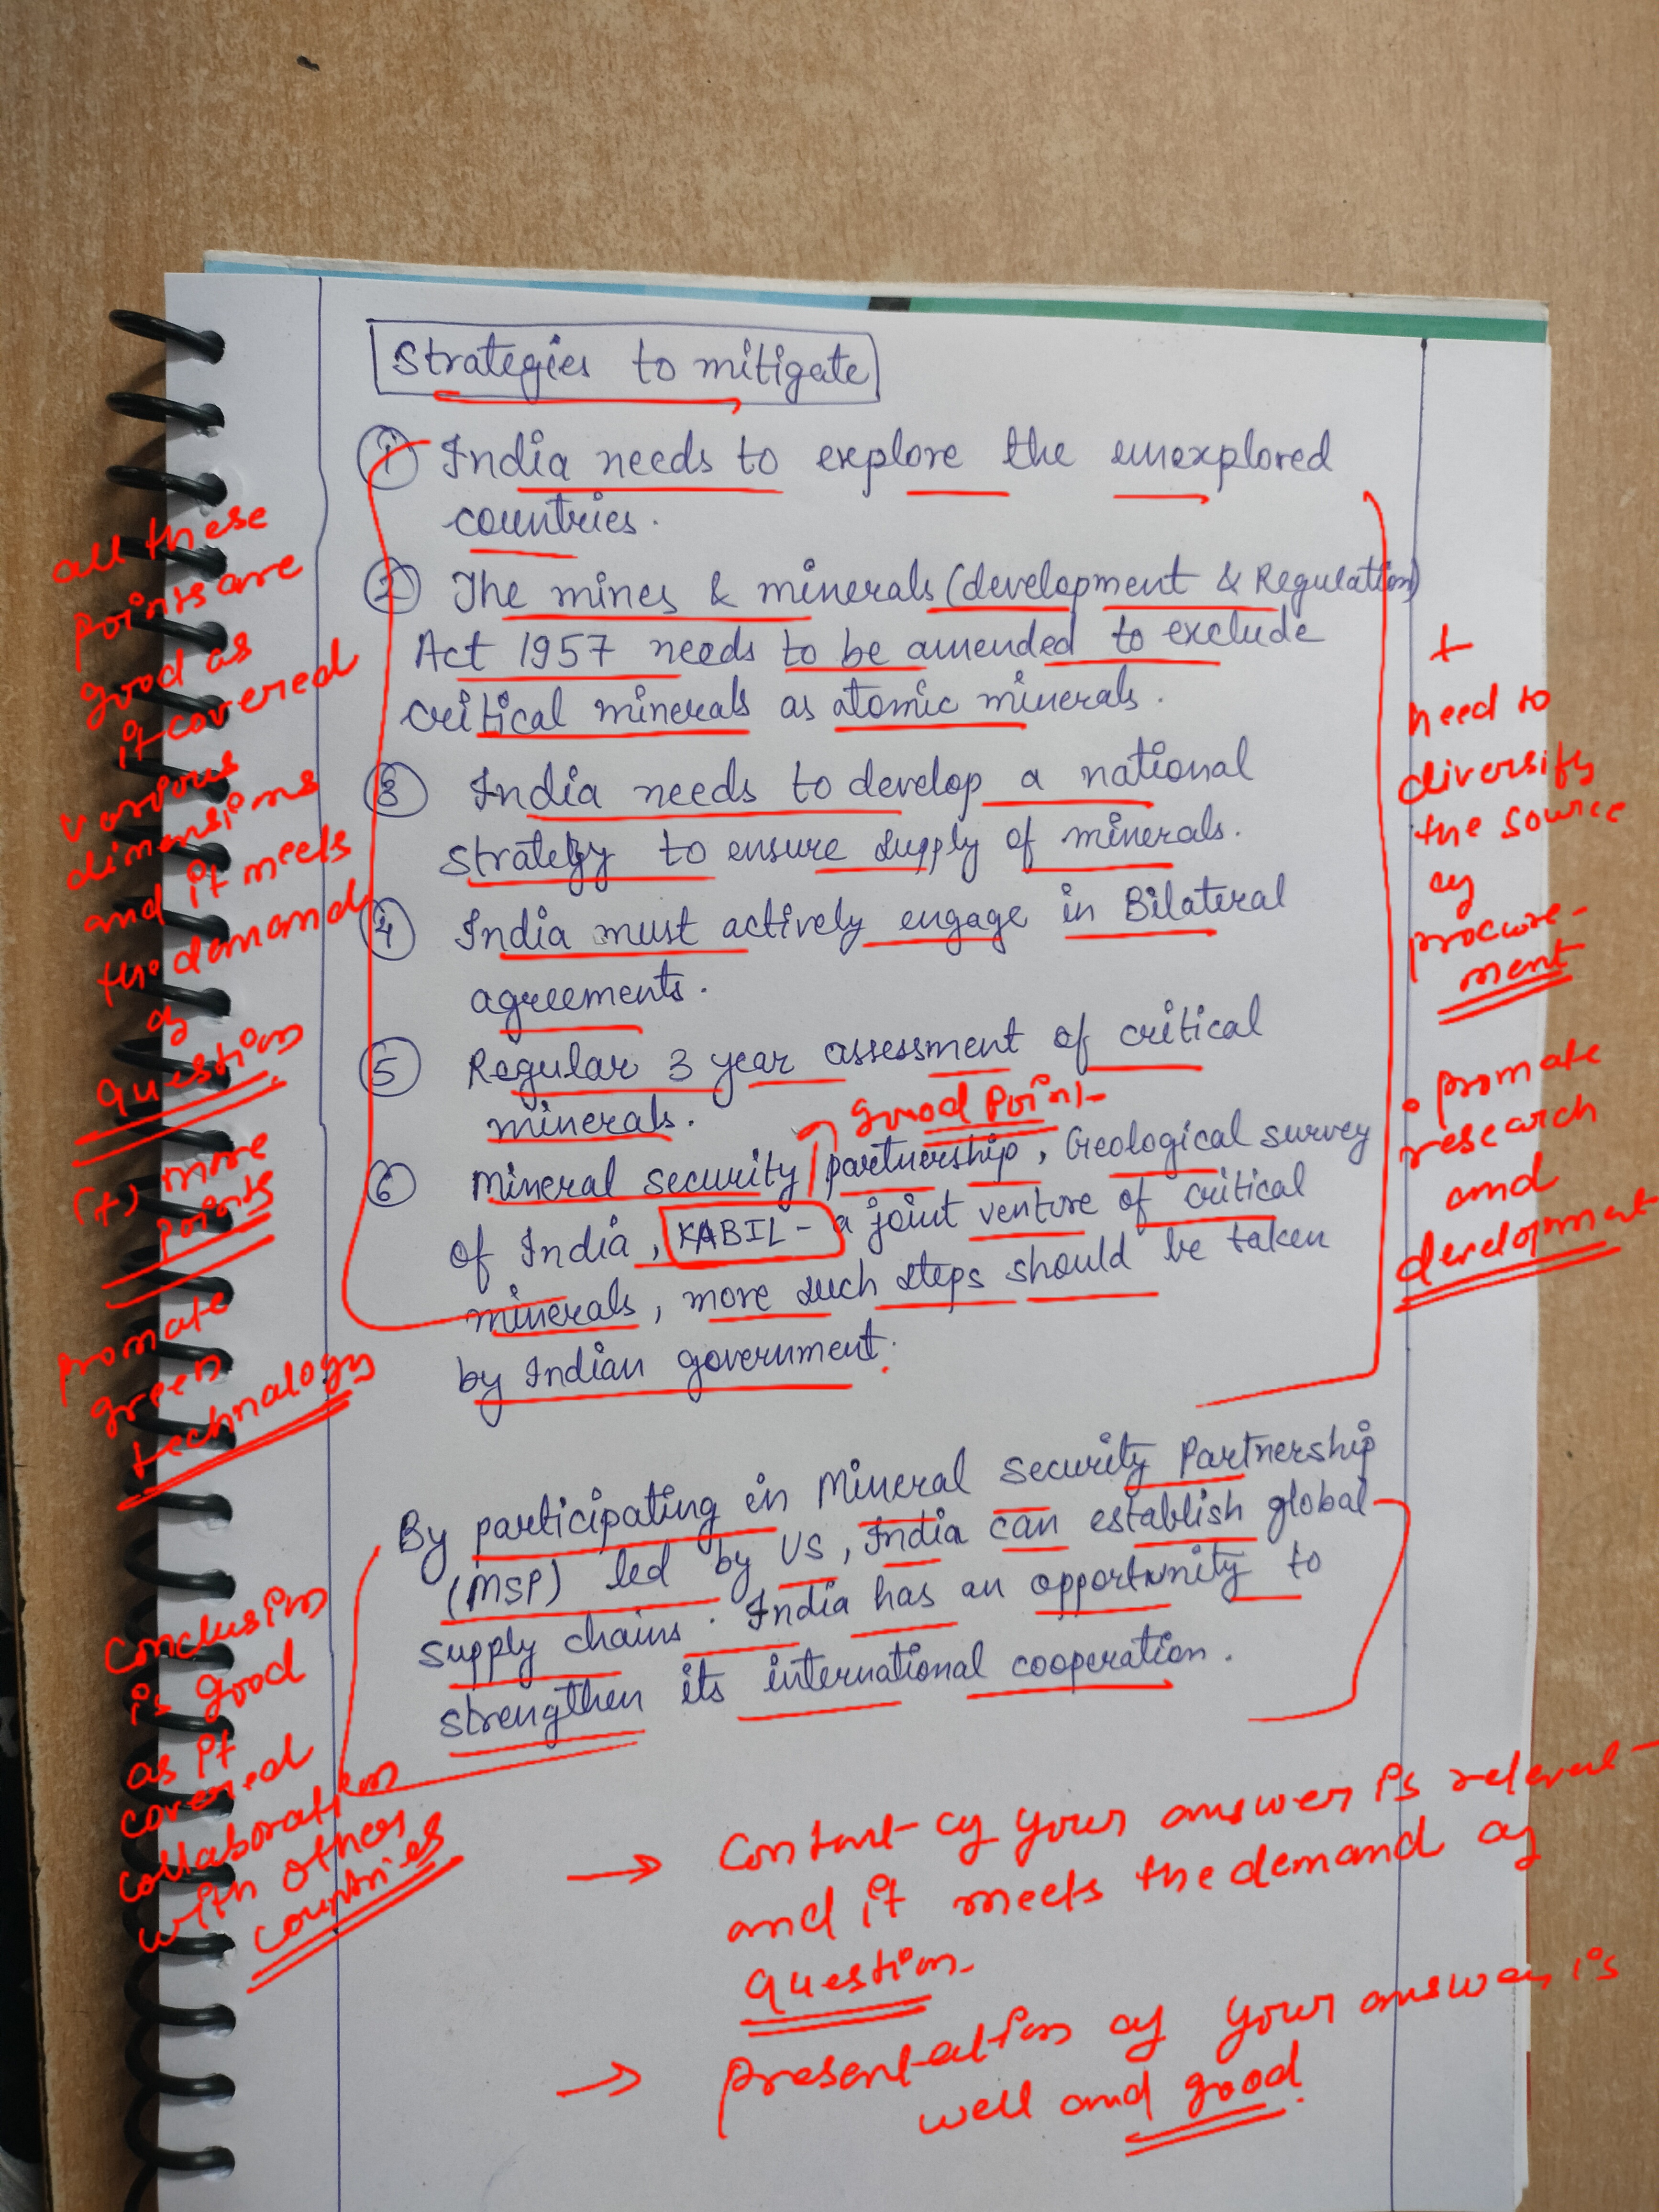 Strategies to mitigate
① India needs to explore the unexplored
countries.
② The mines & minerals (development & Regulation)
Act 1957 needs to be amended to exclude
critical minerals as atomic minerals.
③ India needs to develop a national
strategy to ensure supply of minerals.
④ India must actively engage in Bilateral
agreements.
⑤ Regular 3 year assessment of critical
minerals.
good point
⑥ Mineral security partnership, Geological survey
of India, KABIL - a joint venture of critical
minerals, more such steps should be taken
by Indian government.
By participating in Mineral Security Partnership
(MSP) led by US, India can establish global
supply chains. India has an opportunity to
strengthen its international cooperation.
all these
points are
good as
it covered
various
dimensions
and it meets
the demand
of
question
(+) more
points
promote
green
technology
+
need to
diversify
the source
of
procure-
ment
• promote
research
and
development
Conclusion
is good
as it
covered
collaboration
with other
countries
→ Content of your answer is relevant
and it meets the demand of
question.
→ presentation of your answer is
well and good.